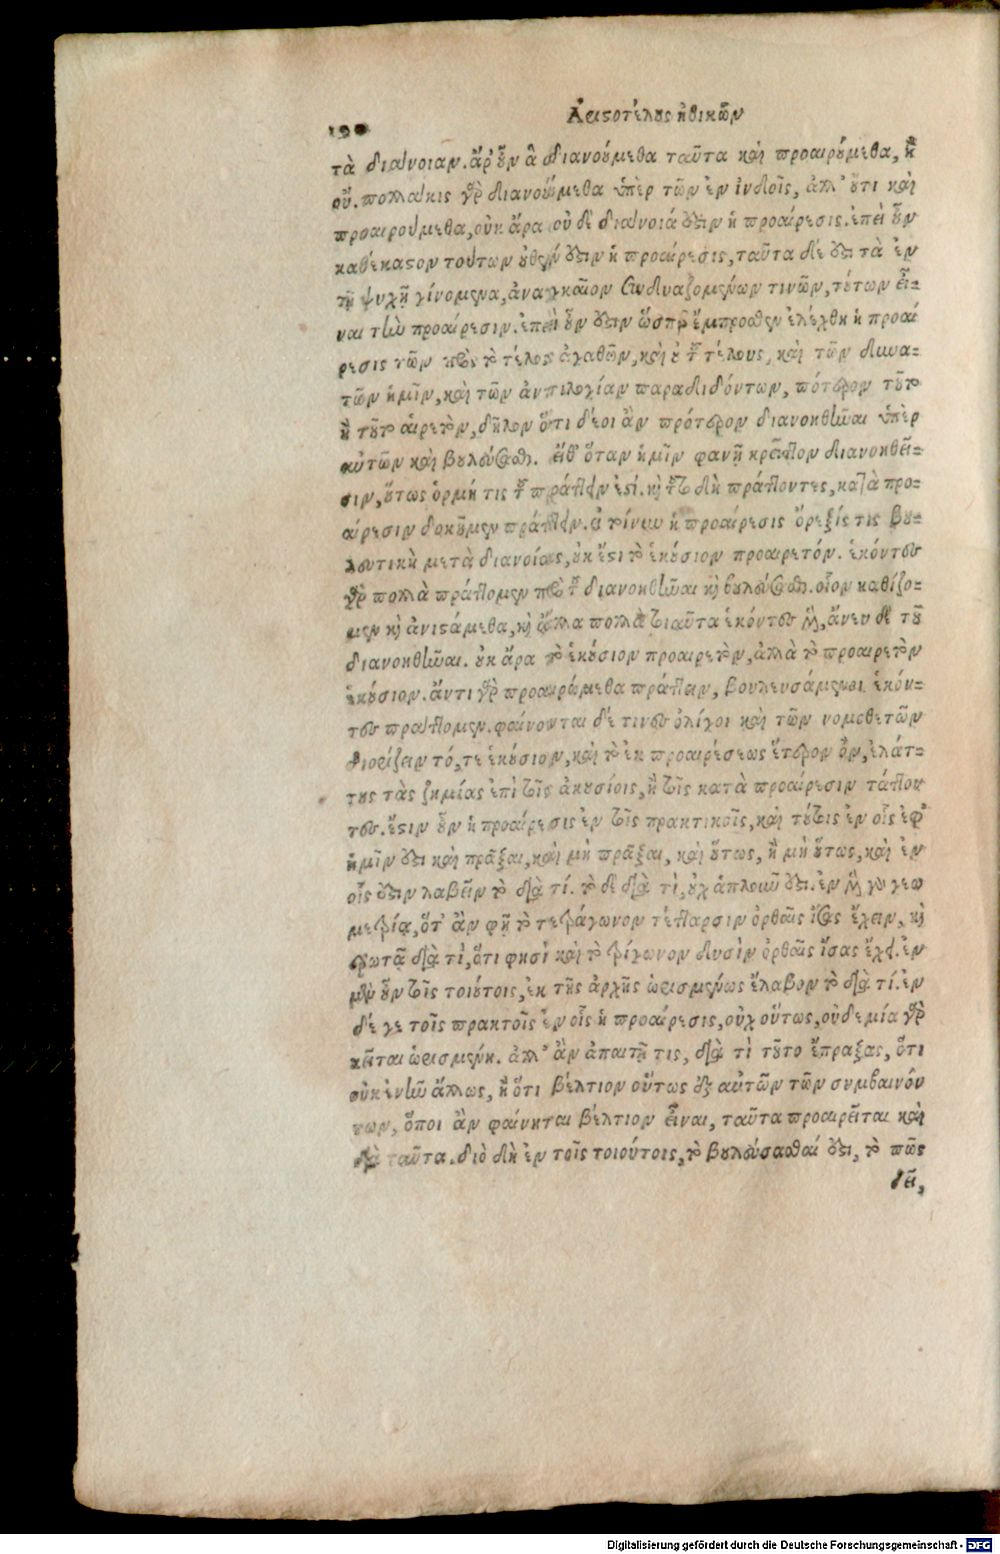 190
Ἀριστοτέλους ἠθικῶν
τὰ διάνοιαν. ἆρ' οὖν ἃ διανούμεθα ταῦτα καὶ προαιρούμεθα, ἢ
οὔ. πολλάκις γὰρ διανοούμεθα ὑπὲρ τῶν ἐν ἰνδοῖς, ἀλλ' οὔτι καὶ
προαιρούμεθα, οὐκ ἄρα οὐδὲ διάνοιά ἐστιν ἡ προαίρεσις. ἐπεὶ οὖν
καθ' ἕκαστον τούτων οὐθέν ἐστιν ἡ προαίρεσις, ταῦτα δέ ἐστι τὰ ἐν
τῇ ψυχῇ γινόμενα, ἀναγκαῖον συνδυαζομένων τινῶν, τούτων εἶ-
ναι τὴν προαίρεσιν. ἐπεὶ οὖν ἐστιν ὥσπερ ἔμπροσθεν ἐλέχθη ἡ προαί
ρεσις τῶν πρὸς τὸ τέλος ἀγαθῶν, καὶ οὐ τοῦ τέλους, καὶ τῶν δυνα-
τῶν ἡμῖν, καὶ τῶν ἀντιλογίαν παραδιδόντων, πότερον τοῦτο
ἢ τοῦτο αἱρετὸν, δῆλον ὅτι δέοι ἂν πρότερον διανοηθῆναι ὑπὲρ
αὐτῶν καὶ βουλεύσασθαι. εἶθ' ὅταν ἡμῖν φανῇ κρεῖττον διανοηθεῖ-
σιν, οὕτως ὁρμή τις τοῦ πράττειν ἐστί. καὶ τοῦτο δὴ πράττοντες, κατὰ προ-
αίρεσιν δοκοῦμεν πράττειν. εἰ τοίνυν ἡ προαίρεσις ὄρεξίς τις βου-
λευτικὴ μετὰ διανοίας, οὐκ ἔστι τὸ ἑκούσιον προαιρετόν. ἑκόντες
γὰρ πολλὰ πράττομεν πρὸ τοῦ διανοηθῆναι καὶ βουλεύσασθαι. οἷον καθίζο-
μεν καὶ ἀνιστάμεθα, καὶ ἄλλα πολλὰ τοιαῦτα ἑκόντες μὲν, ἄνευ δὲ τοῦ
διανοηθῆναι. οὐκ ἄρα τὸ ἑκούσιον προαιρετὸν, ἀλλὰ τὸ προαιρετὸν
ἑκούσιον. ἄντι γὰρ προαιρώμεθα πράττειν, βουλευσάμενοι ἑκόν-
τες πράττομεν. φαίνονται δέ τινες ὀλίγοι καὶ τῶν νομοθετῶν
διορίζειν τό, τε ἑκούσιον, καὶ τὸ ἐκ προαιρέσεως ἕτερον ὂν, ἐλάτ-
τους τὰς ζημίας ἐπὶ τοῖς ἀκουσίοις, ἢ τοῖς κατὰ προαίρεσιν τάττον
τες. ἔστιν οὖν ἡ προαίρεσις ἐν τοῖς πρακτικοῖς, καὶ τούτοις ἐν οἷς ἐφ'
ἡμῖν ἐστι καὶ πρᾶξαι, καὶ μὴ πρᾶξαι, καὶ οὕτως, ἢ μὴ οὕτως, καὶ ἐν
οἷς ἐστιν λαβεῖν τὸ διὰ τί. τὸ δὲ διὰ τὶ, οὐχ ἁπλοῦν ἐστι. ἐν μὲν γὰρ γεω
μετρίᾳ, ὅτ' ἂν φῇ τὸ τετράγωνον τέτταρσιν ὀρθαῖς ἴσας ἔχειν, καὶ
ἐρωτᾷ διὰ τὶ, ὅτι φησὶ καὶ τὸ τρίγωνον δυσὶν ὀρθαῖς ἴσας ἔχει. ἐν
μὲν οὖν τοῖς τοιούτοις, ἐκ τῆς ἀρχῆς ὡρισμένως ἔλαβον τὸ διὰ τί. ἐν
δέ γε τοῖς πρακτοῖς ἐν οἷς ἡ προαίρεσις, οὐχ οὕτως, οὐδεμία γὰρ
κεῖται ὡρισμένη. ἀλλ' ἂν ἀπαιτῇ τις, διὰ τὶ τοῦτο ἔπραξας, ὅτι
οὐκ ἐνῆν ἄλλως, ἢ ὅτι βέλτιον οὕτως ἐξ αὐτῶν τῶν συμβαινόν
των, ὅποι ἂν φαίνηται βέλτιον εἶναι, ταῦτα προαιρεῖται καὶ
διὰ ταῦτα. διὸ δὴ ἐν τοῖς τοιούτοις, τὸ βουλεύσασθαί ἐστι, τὸ πῶς
δεῖ,
Digitalisierung gefördert durch die Deutsche Forschungsgemeinschaft - DFG